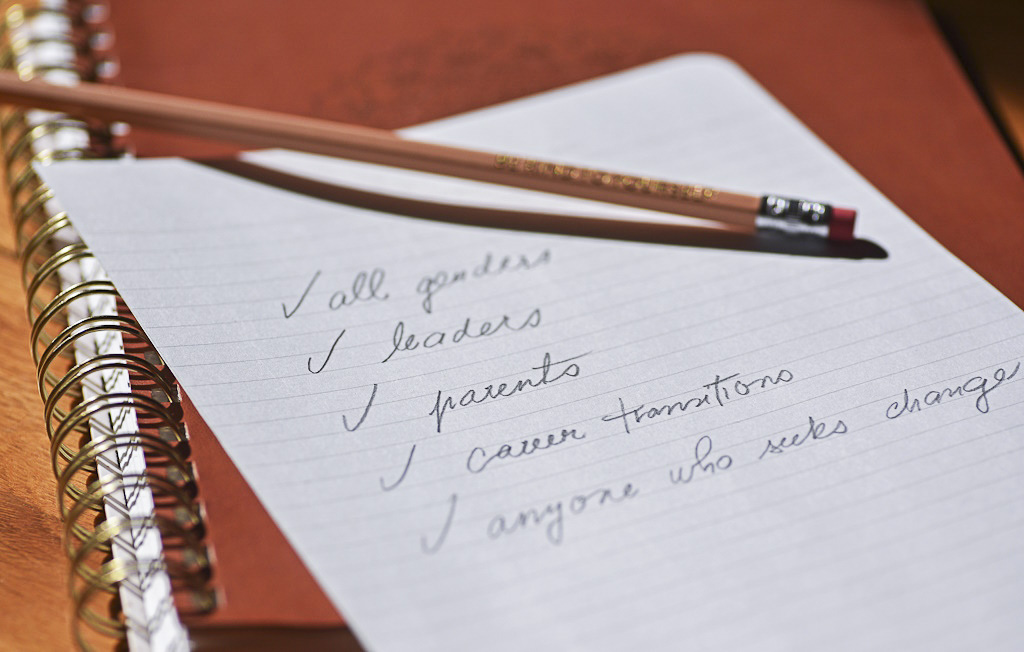 ✓ all genders
✓ leaders
✓ parents
✓ career transitions
✓ anyone who seeks change